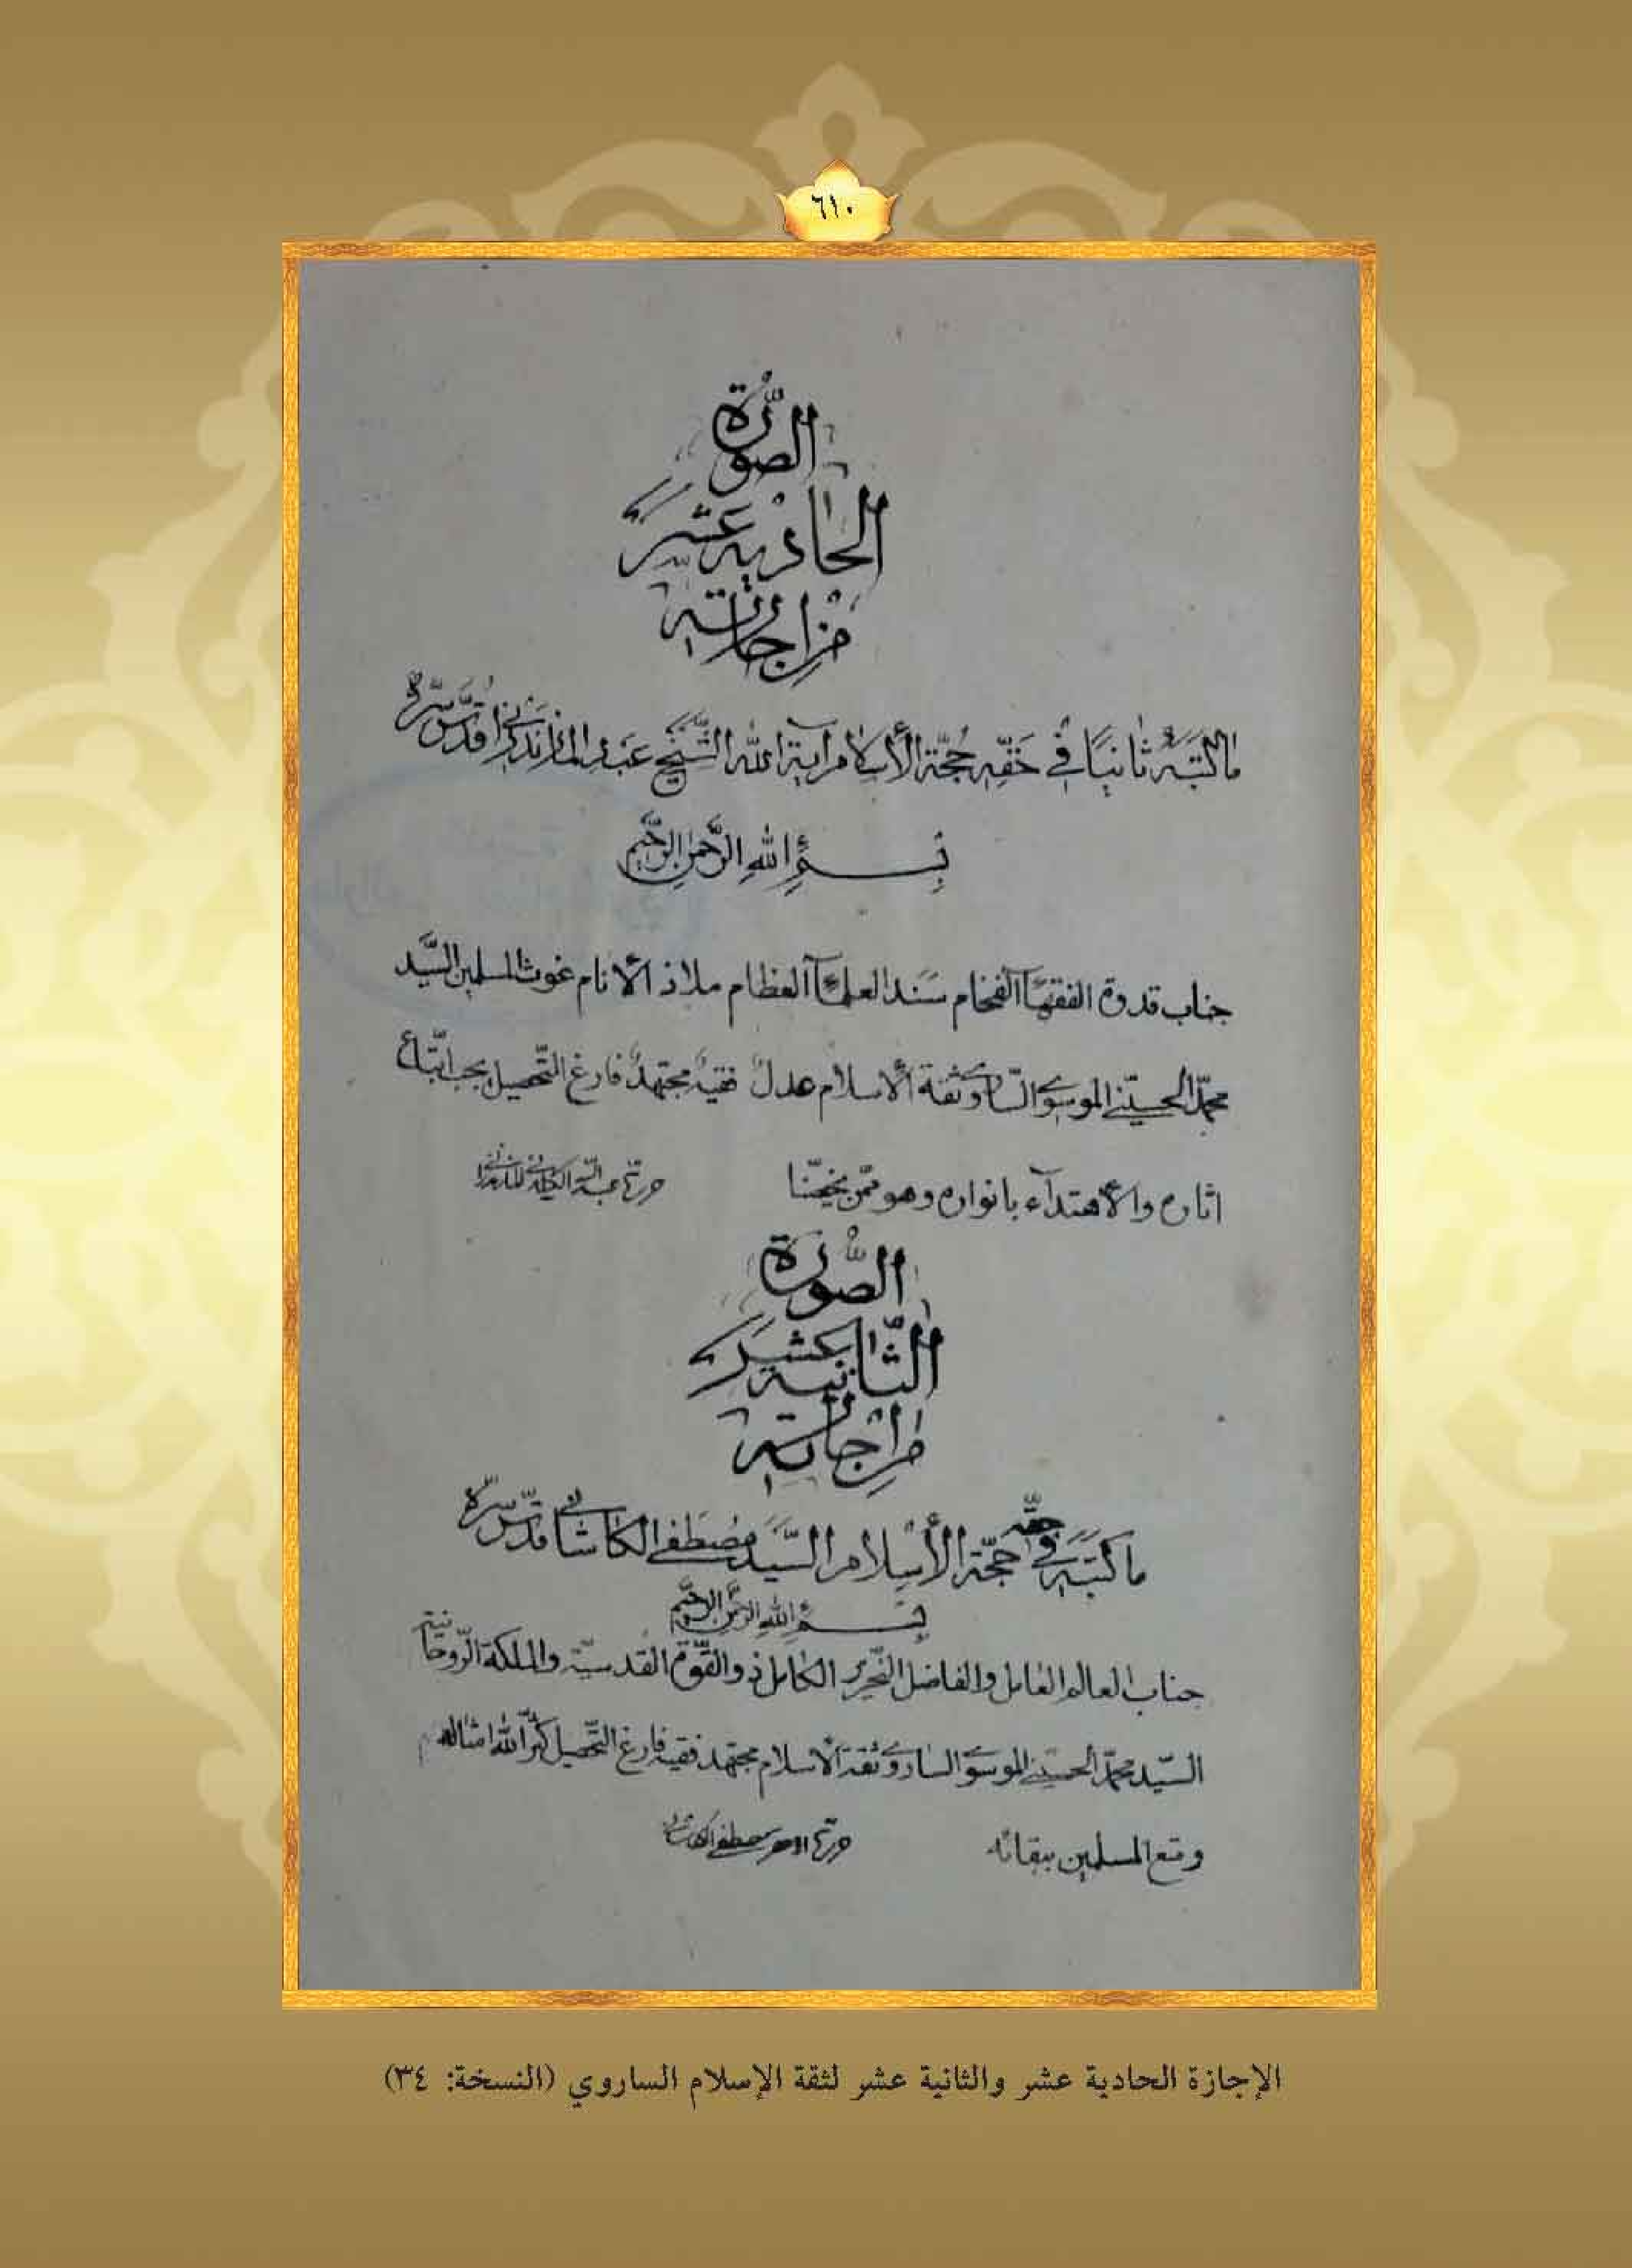 ٦١٠
الصّورة
الحادية عشر
من اجازته
ما كتبه ثانيًا في حقّه حُجّة الأسلام آية الله الشّيخ عبدالله المازندراني قدّس سرّه
بسم الله الرّحمن الرّحيم
جناب قدوة الفقهآء الفخام سَند العلمآء العظام ملاذ الأنام غوث المسلمين السيّد
محمّد الحسيني الموسوي السّاروي ثقة الأسلام عدلٌ فقيهٌ مجتهدٌ فارغ التّحصيل يجب اتّباع
اثاره والأهتدآء بانواره وهو ممّن يخصّنا
حرّره عبدالله المازندراني
الصّورة
الثّانية عشر
من اجازته
ما كتبه في حقّه حجّة الأسلام السيّد مصطفى الكاشاني قدّس سرّه
بسم الله الرّحمن الرّحيم
جناب العالم العامل والفاضل النّحرير الكامل ذو القوّة القدسيّة والملكة الرّوحانية
السيّد محمّد الحسيني الموسوي الساروي ثقة الأسلام مجتهد فقيه فارغ التّحصيل كثّر الله امثاله
ومتع المسلمين ببقائه
حرّره الاحقر مصطفى الكاشاني
الإجازة الحادية عشر والثانية عشر لثقة الإسلام الساروي (النسخة: ٣٤)